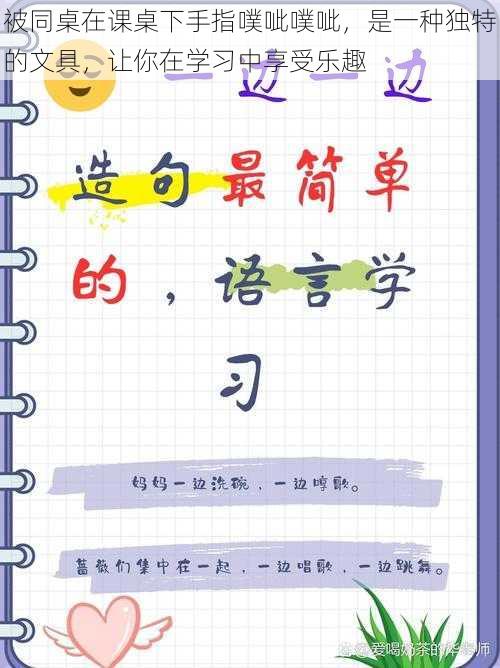 被同桌在课桌下手指噗呲噗呲，是一种独特
的文具，让你在学习中享受乐趣
一边一边
造句最简单
的，语言学
习
妈妈一边洗碗，一边哼歌。
蔷薇们集中在一起，一边唱歌，一边跳舞。
爱喝奶茶的 老师